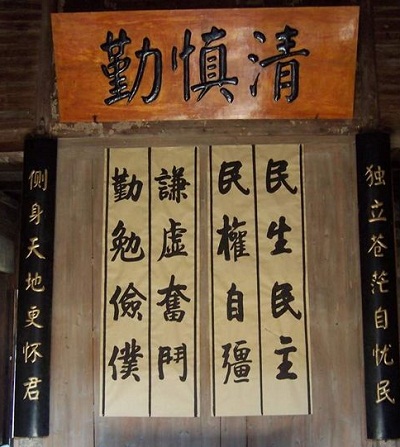 清慎勤
独立苍茫自忧民
民生民主
民權自彊
謙虛奮鬥
勤勉儉僕
侧身天地更怀君